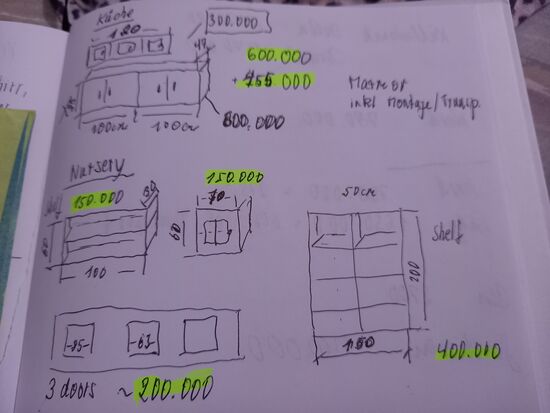 Küche
120
300.000
47
600.000
+ 755.000
Marmor
inkl Montage/Transp.
100cm
100cm
800.000
Nursery
150.000
150.000
Shelf
30
70
50cm
60
60
shelf
200
100
100
400.000
3 doors ~ 200.000